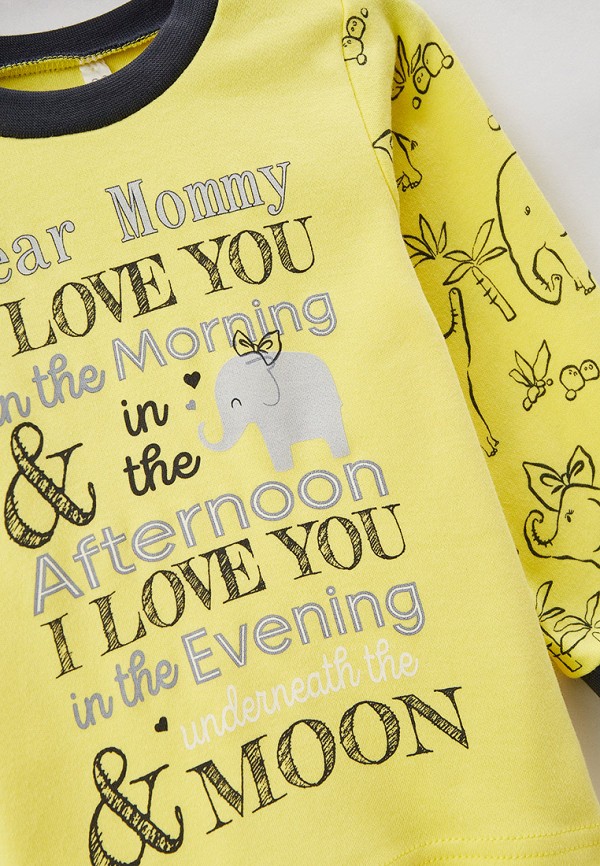 ear Mommy
I LOVE YOU
in the Morning
& in
the
Afternoon
I LOVE YOU
in the Evening
underneath the
& MOON